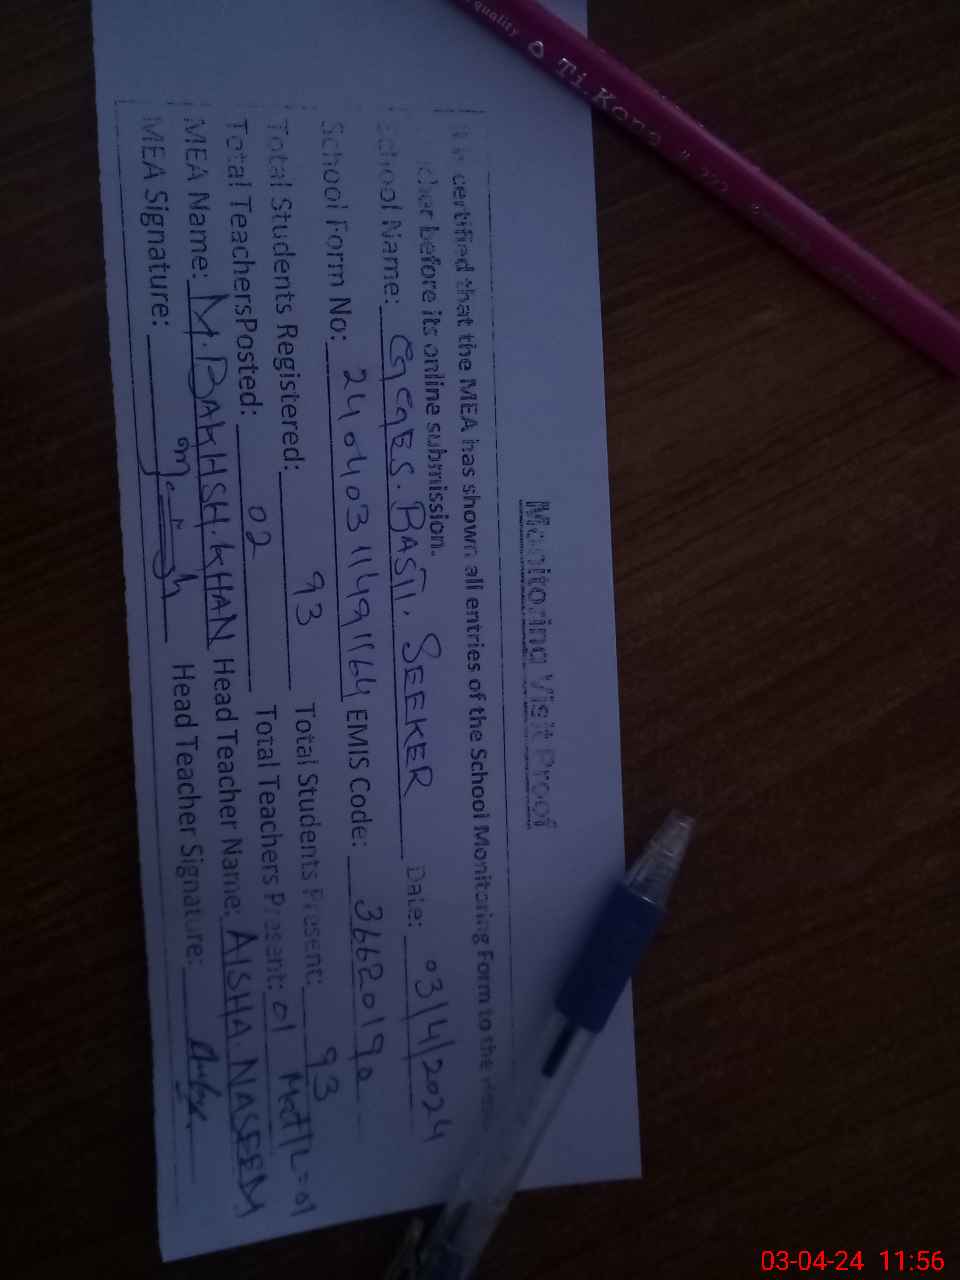 Monitoring Visit Proof
It is certified that the MEA has shown all entries of the School Monitoring Form to the Head
before its online submission.
School Name: GGES. BASTI. SEEKER Date: 03/4/2024
School Form No: 240403114911164 EMIS Code: 36620190
Total Students Registered: 93 Total Students Present: 93
Total TeachersPosted: 02 Total Teachers Present: 01 Mat/L=01
MEA Name: M.BAKHSH.KHAN Head Teacher Name: AISHA.NASEEM
MEA Signature: Head Teacher Signature:
quality Ti.Kong
03-04-24 11:56